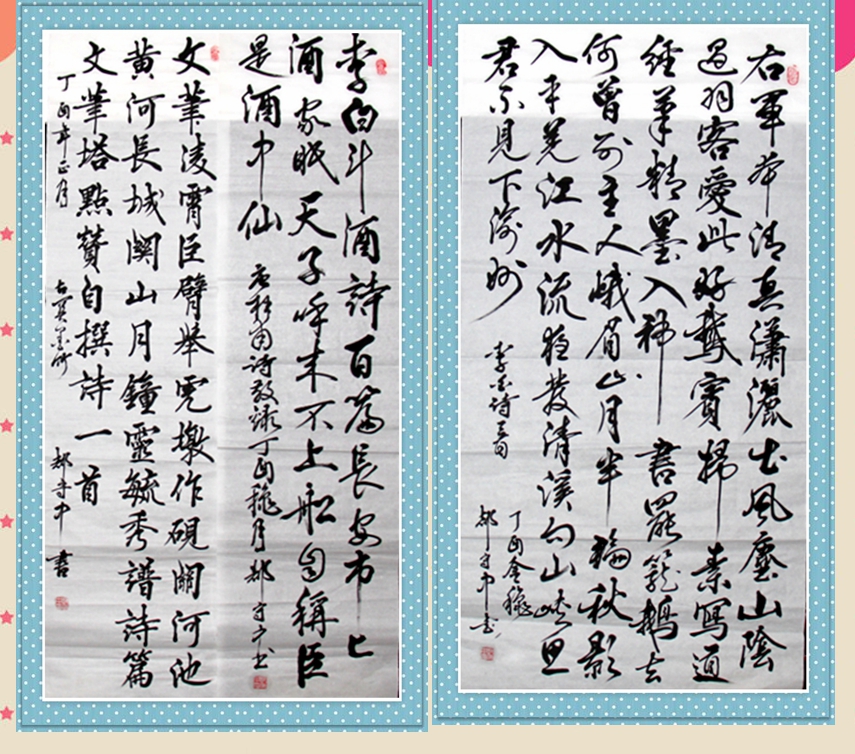 李白斗酒詩百篇長安市上
酒家眠天子呼来不上船自稱臣
是酒中仙 唐杜甫詩敬录丁酉穐月郝守中书
文筆凌霄巨臂舉墩作硯闢河池
黄河長城関山月鐘靈毓秀譜詩篇
文筆塔點贊自撰詩一首
丁酉年正月 郝守中書
右軍本清真瀟灑出風塵山陰
過羽客愛此好鵞賓掃素寫道
經筆精墨入神書罷籠鵝去
何曾别主人峨眉山月半輪秋影
入平羌江水流夜發清溪向山峡思
君不見下渝州 李白詩二首
丁酉金穐
郝守中书